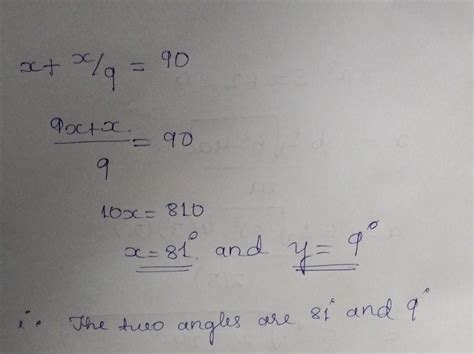 x + x/9 = 90
9x+x / 9 = 90
10x = 810
x = 81° and y = 9°
∴ The two angles are 81° and 9°